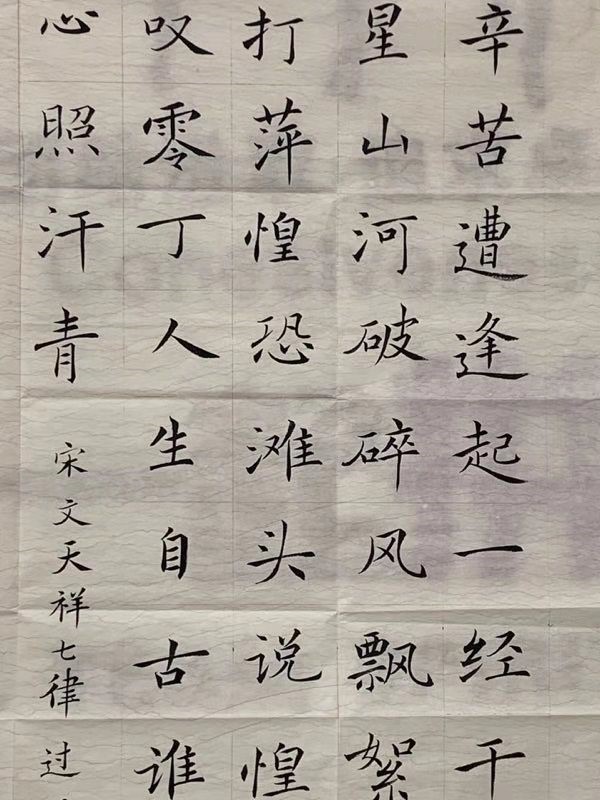 辛苦遭逢起一经干
星山河破碎风飘絮
打萍惶恐滩头说惶
叹零丁人生自古谁
心照汗青
宋文天祥七律过